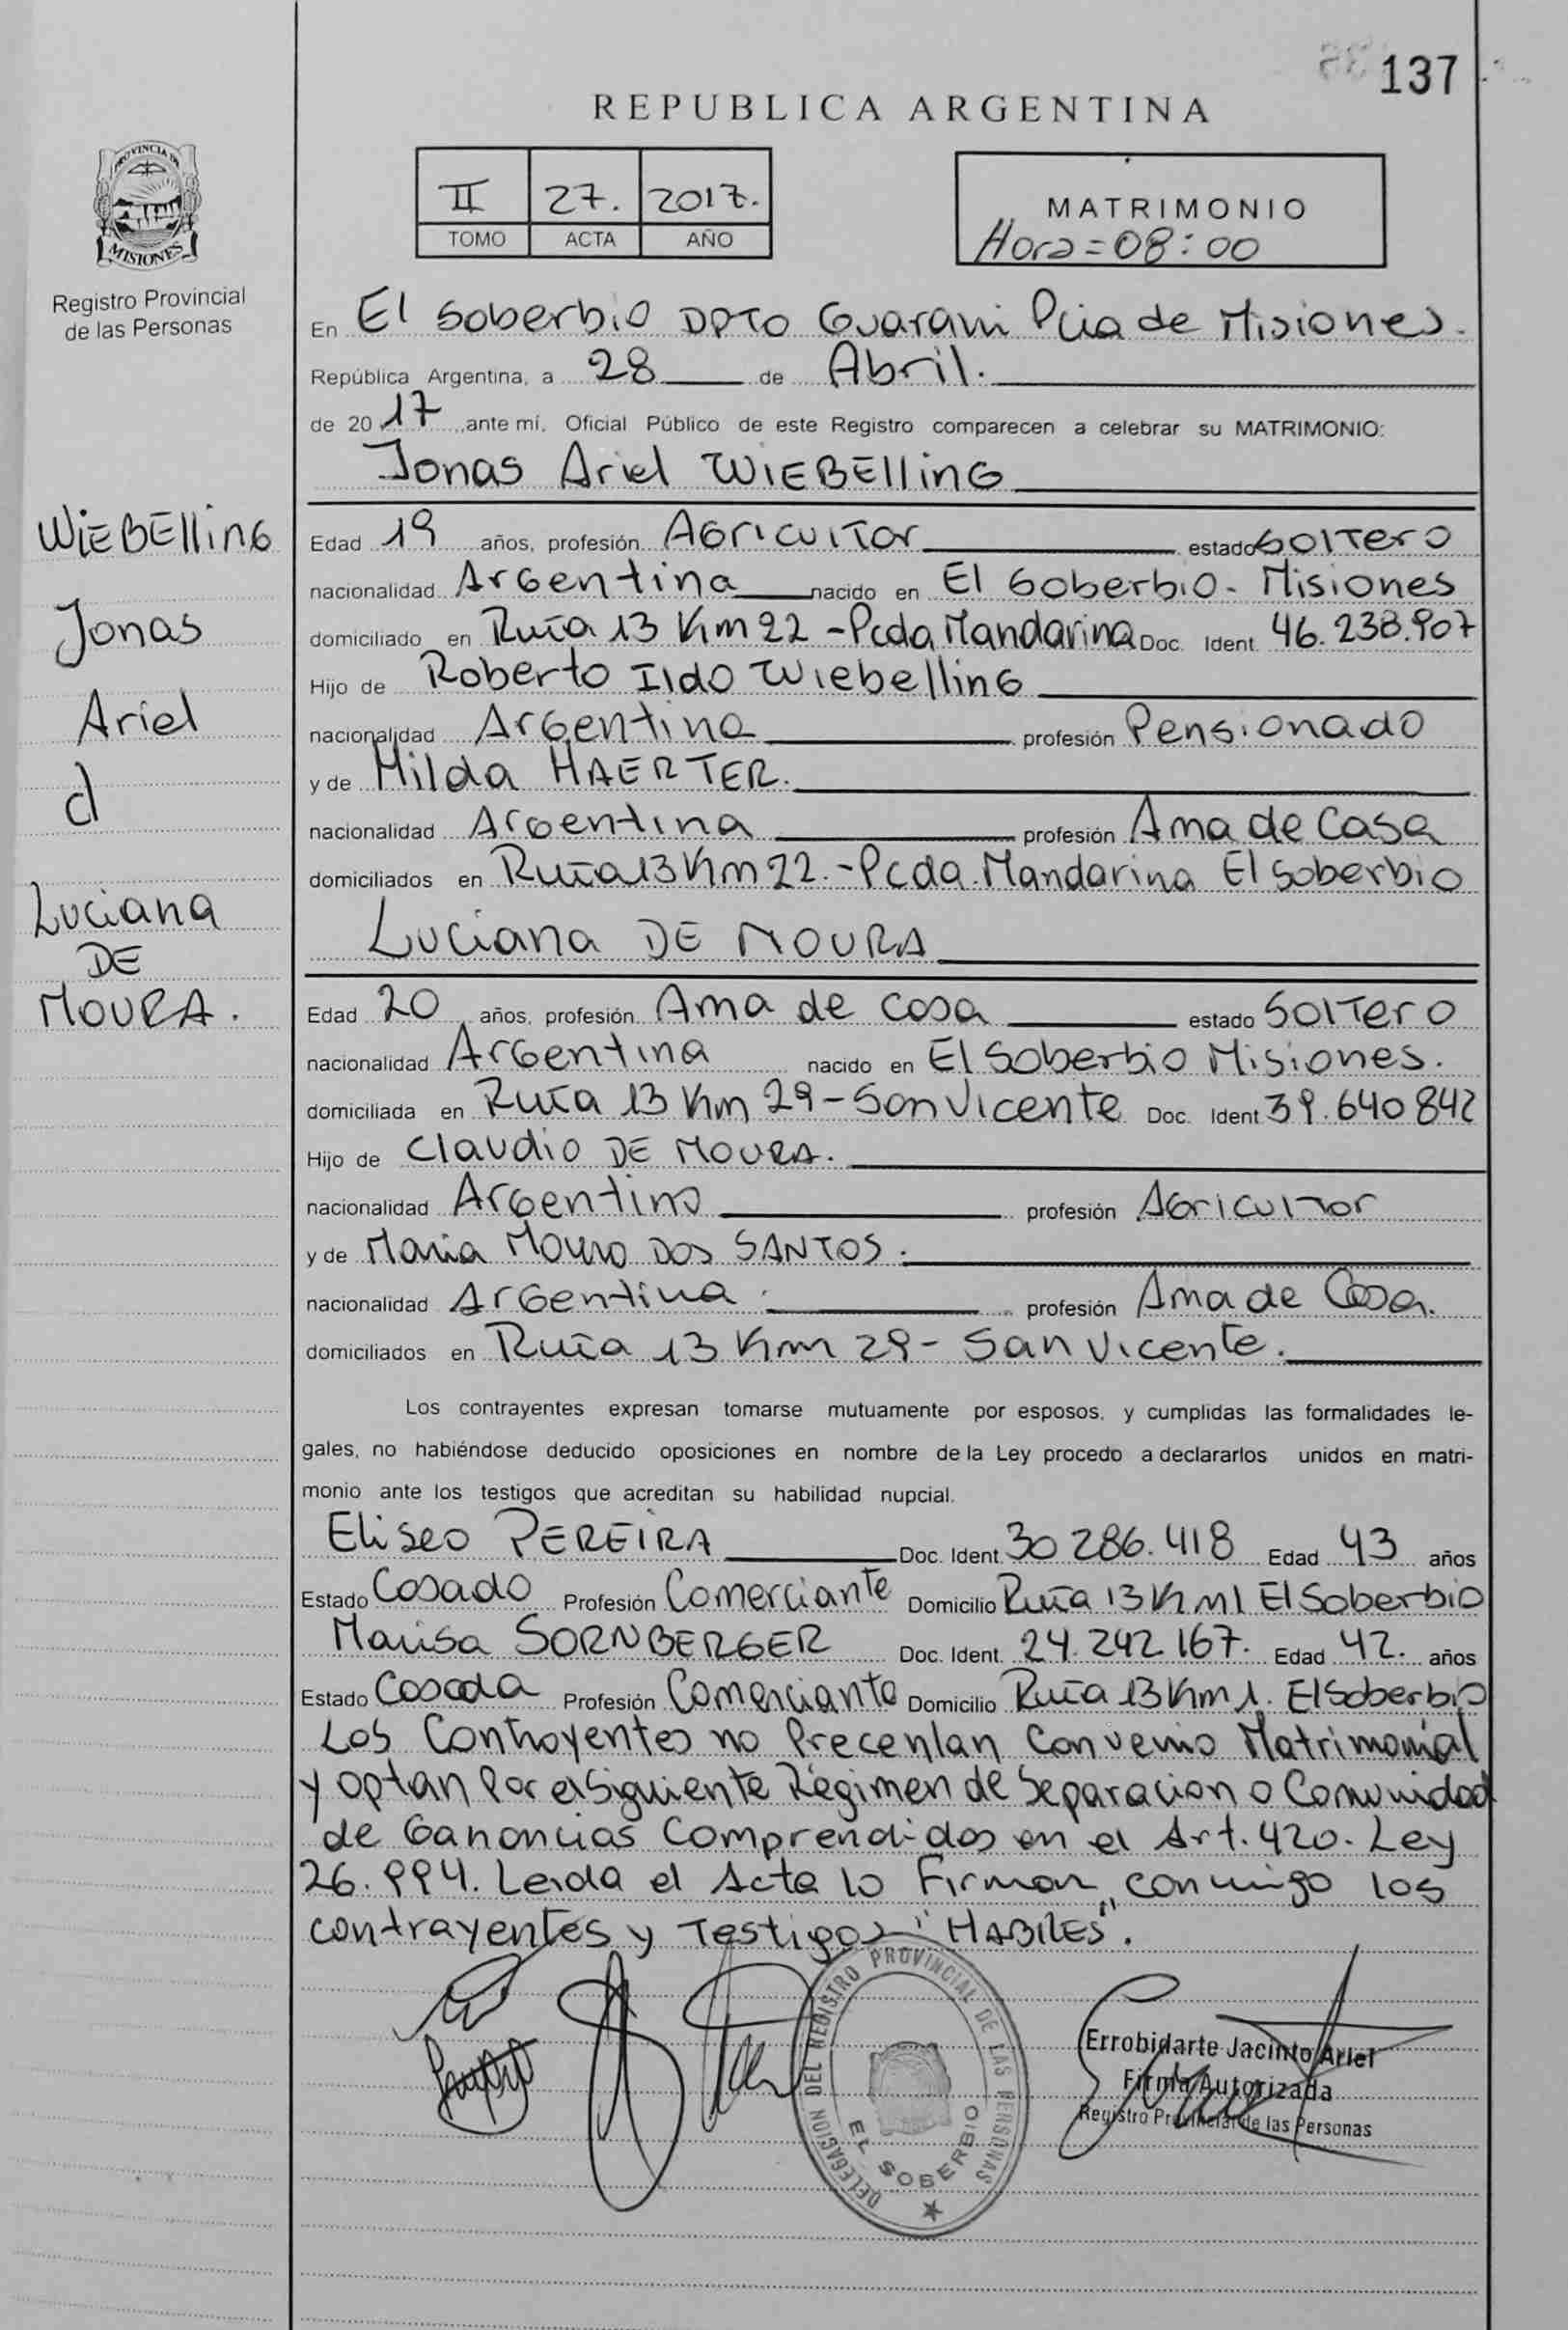 137
REPUBLICA ARGENTINA
II 27. 2017.
TOMO ACTA AÑO
MATRIMONIO
Hora=08:00
PROVINCIA DE
MISIONES
Registro Provincial
de las Personas
En El Soberbio DPTO Guarani Pcia de Misiones.
República Argentina, a 28 de Abril.
de 2017 ,ante mí, Oficial Público de este Registro comparecen a celebrar su MATRIMONIO:
Jonas Ariel WIEBElling
WIEBElling
Jonas
Ariel
Luciana
DE
MOURA.
Edad 19 años, profesión Agricultor estado Soltero
nacionalidad Argentina nacido en El Soberbio- Misiones
domiciliado en Ruta 13 Km 22 -Pcda Mandarina Doc. Ident. 46.238.907
Hijo de Roberto Ildo Wiebelling
nacionalidad Argentina profesión Pensionado
y de Hilda HAERTER.
nacionalidad Argentina profesión Ama de Casa
domiciliados en Ruta 13 Km 22.-Pcda.Mandarina El Soberbio
Luciana DE MOURA
Edad 20 años, profesión Ama de casa estado Soltero
nacionalidad Argentina nacido en El Soberbio Misiones.
domiciliada en Ruta 13 Km 29-San Vicente Doc. Ident. 39.640 842
Hijo de Claudio DE MOURA.
nacionalidad Argentino profesión Agricultor
y de Maria DOS SANTOS.
nacionalidad Argentina. profesión Ama de Casa.
domiciliados en Ruta 13 Km 29- San Vicente.
Los contrayentes expresan tomarse mutuamente por esposos, y cumplidas las formalidades le-
gales, no habiéndose deducido oposiciones en nombre de la Ley procedo a declararlos unidos en matri-
monio ante los testigos que acreditan su habilidad nupcial.
Eliseo PEREIRA Doc. Ident. 30 286.418 Edad 43 años
Estado Casado Profesión Comerciante Domicilio Ruta 13 Km 1 El Soberbio
Marisa SORNBERGER Doc. Ident. 24.242.167. Edad 42. años
Estado Casada Profesión Comerciante Domicilio Ruta 13 Km 1. El Soberbio
Los Contrayentes no Precentan Convenio Matrimonial
y optan Por el Siguiente Régimen de Separacion o Comunidad
de Ganancias Comprendidos en el Art. 420. Ley
26.994. Leida el Acta lo Firman conmigo los
contrayentes y Testigos "HABILES".
DELEGACION DEL REGISTRO PROVINCIAL DE LAS PERSONAS
EL SOBERBIO
Errobidarte Jacinto Ariel
Firma Autorizada
Registro Provincial de las Personas